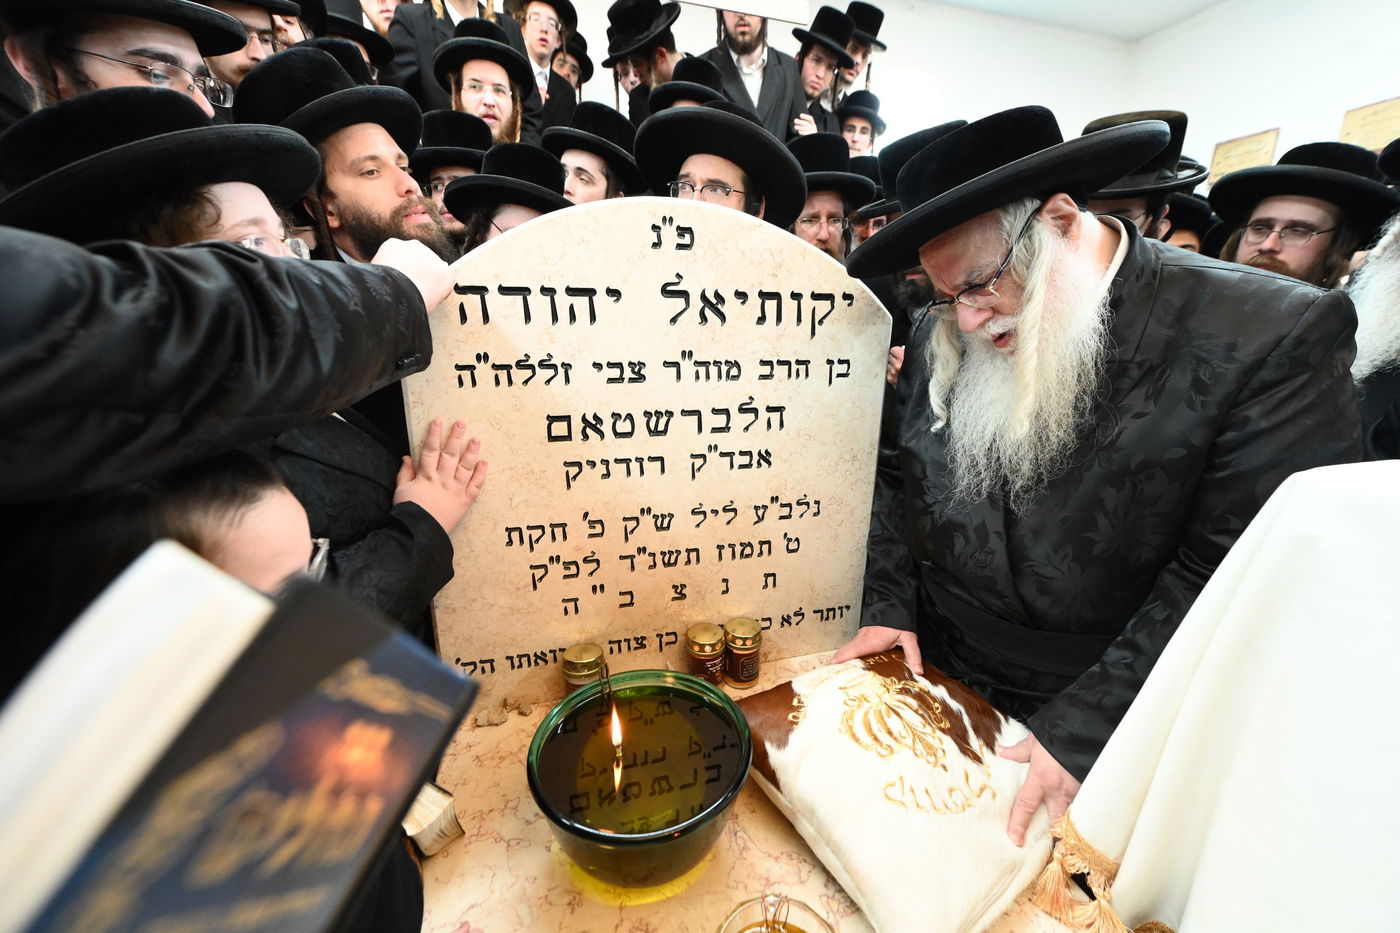 פ"נ
יקותיאל יהודה
בן הרב מוה"ר צבי זללה"ה
הלברשטאם
אבד"ק רודניק
נלב"ע ליל ש"ק פ' חקת
ט' תמוז תשנ"ד לפ"ק
ת נ צ ב" ה
יותר לא כן צוה הק'